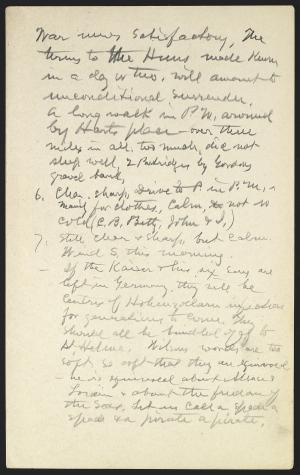 War news satisfactory, The
terms to the Huns made known
in a day or two, will amount to
unconditional surrender.
A long walk in P.M. around
by Harts place — over three
miles in all, too much, did not
sleep well, 2 Partridges by Gordons
gravel bank,
6. Clear, sharp, drive to P in P.M.,
mainly for clothes, Calm, not so
cold (C.B. Betty, John & I,)
7. Still clear & sharp, but calm.
Wind S, this morning.
— If the Kaiser & his six sons are
left in Germany, they will be
centers of Hohenzollern infection
for generations to come. They
should all be bundled off to
St Helena. Wilsons words are too
soft, so soft that they are equivocal
— he is equivocal about Alsace
Lorain & about the freedom of
the Seas, Let us call a spade a
spade & a pirate a pirate.